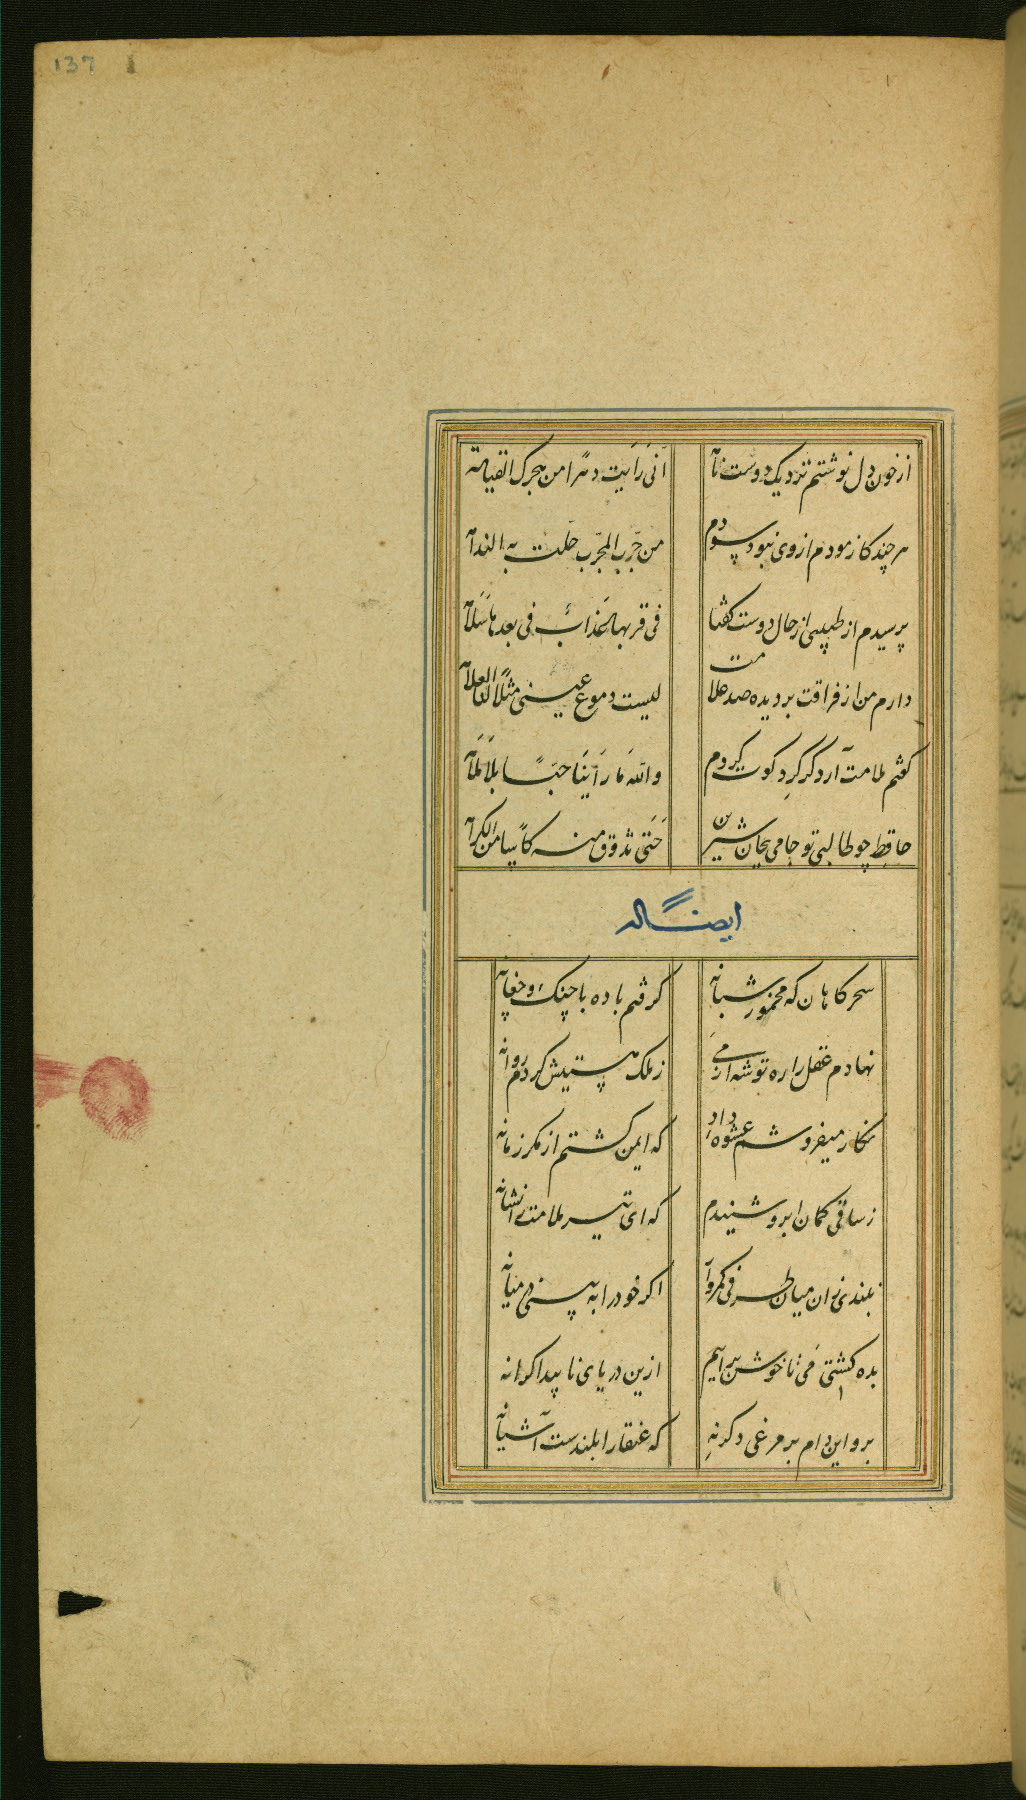 137
از خون دل نوشتم نزدیک دوست نامه انی رایت دهرا من هجرک القیامه
هر چند کازمودم از وی نبود سودم من جرب المجرب حلت به الندامه
پرسیدم از طبیبی از حال دوست گفتا فی قربها عذاب فی بعدها سلامه
دارم من از فراقت بر دیده صد علامت لیست دموع عینی مثلا لنا العلامه
گفتم ملامت آرد گر گرد کوت گردم والله ما راینا حبا بلا ملامه
حافظ چو طالبی تو جامی بجان شیرین حتی تذوق منه کاسا من الکرامه
ایضا له
سحرگاهان که مخمور شبانه گرفتم باده با چنگ و چغانه
نهادم عقل را ره توشه از می ز ملک هستیش کردم روانه
نگار میفروشم عشوه داد که ایمن گشتم از مکر زمانه
ز ساقی کمان ابرو شنیدم که ای تیر ملامت را نشانه
نبندی زان میان طرفی کمروار اگر خود را به بینی در میانه
بده کشتی می تا خوش برآییم ازین دریای ناپیدا کرانه
برو این دام بر مرغی دگر نه که عنقا را بلندست آشیانه